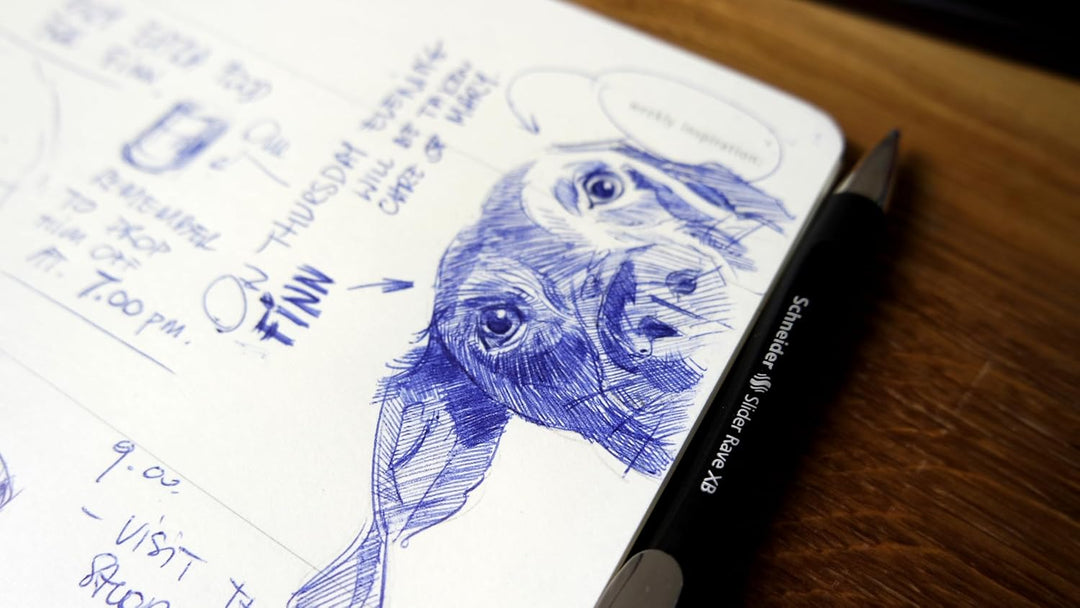 FOOD
FINN.
REMEMBER
TO DROP
HIM OFF
AT. 7.00 pm.
ON THURSDAY EVENING
FINN
WILL BE TAKEN
CARE OF MARY.
weekly inspiration:
9.00
- VISIT
Schneider Slider Rave XB